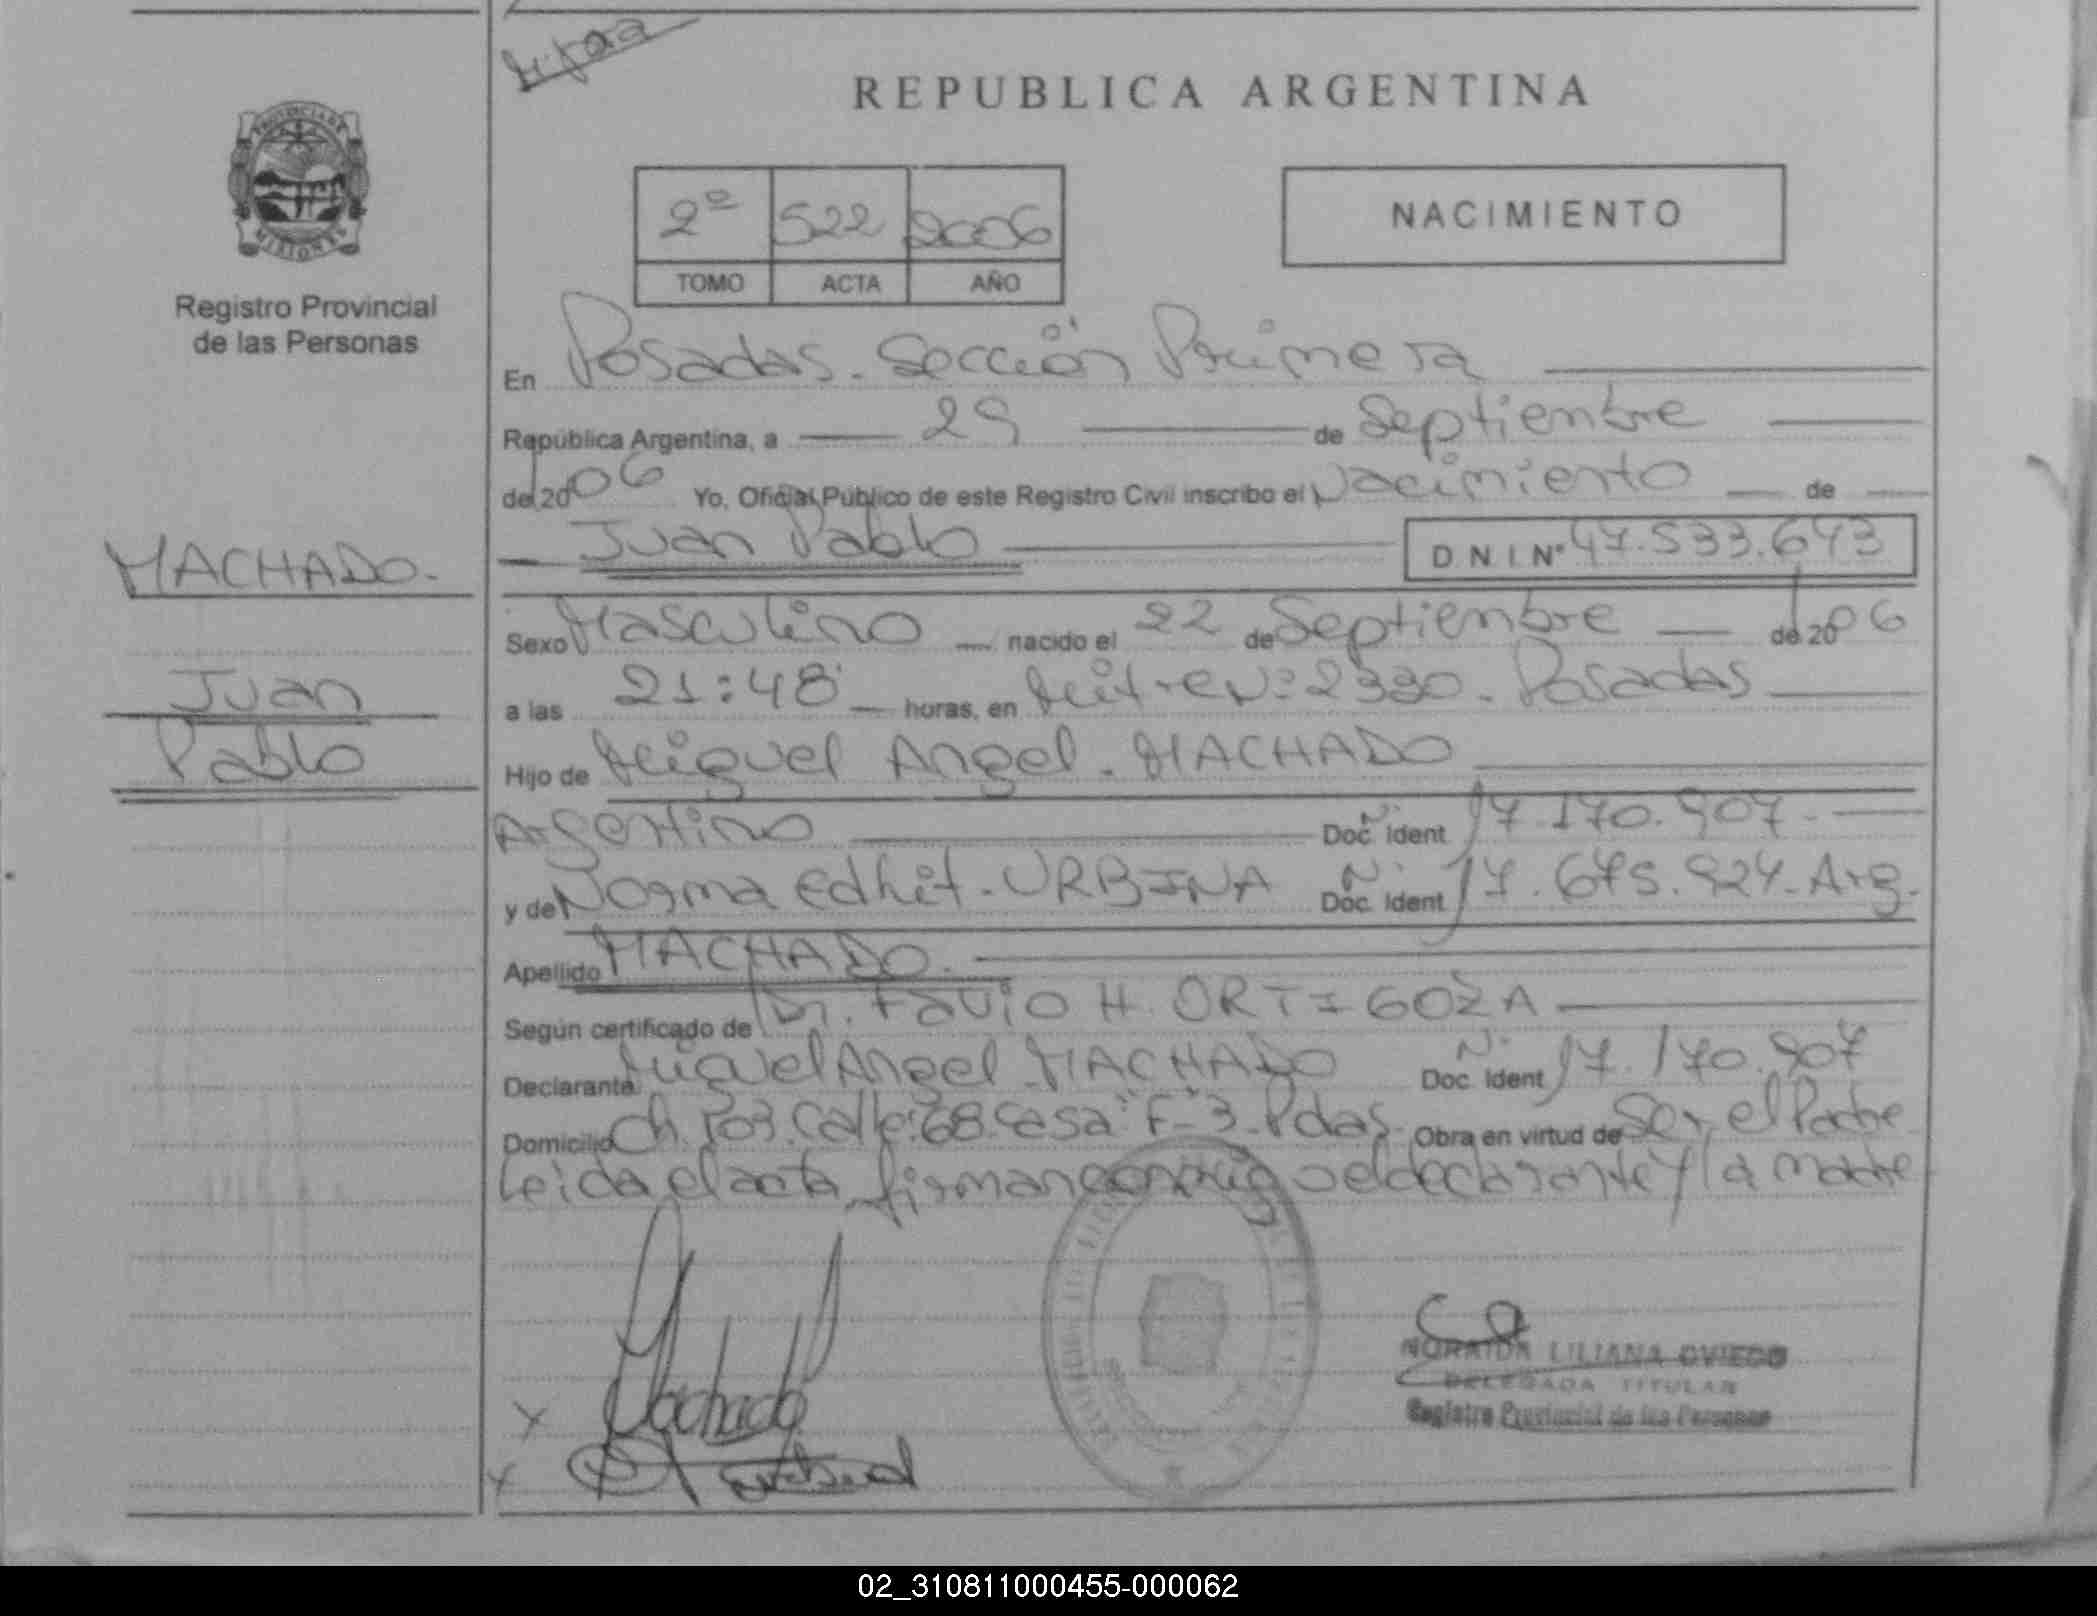 REPUBLICA ARGENTINA
PROVINCIA DE
MISIONES
Registro Provincial
de las Personas
2º 522 2006
TOMO ACTA AÑO
NACIMIENTO
En Posadas. Sección Primera
República Argentina, a 29 de Septiembre
del 2006 Yo, Oficial Público de este Registro Civil inscribo el Nacimiento de
Juan Pablo D N I Nº 47.533.643
MACHADO.
Juan
Pablo
Sexo Masculino nacido el 22 de Septiembre del 2006
a las 21:48 horas, en Mitre Nº 2330. Posadas
Hijo de Miguel Angel. MACHADO
Argentino Doc. Ident Nº 17.170.907.
y de Norma Edhit. URBINA Doc. Ident Nº 17.675.924. Arg.
Apellido MACHADO.
Según certificado de Dr. Favio H. ORTIGOZA
Declarante Miguel Angel MACHADO Doc. Ident Nº 17.170.907
Domicilio Ch. 103. Calle: 68. Casa "F" 3. Pdas. Obra en virtud de Ser el Padre
Leida el acta firman conmigo el declarante y la madre
X Machado
X
NORAIDA LILIANA OVIEDO
DELEGADA TITULAR
Registro Provincial de las Personas
02_310811000455-000062